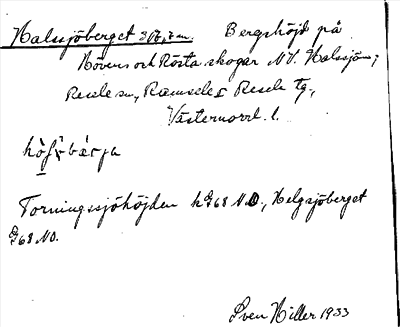 Halssjöberget 317,7 m. Bergshöjd på
Növens och Rösta skogar NV. Halssjön,
Resele sn, Ramsele o Resele tg.,
Västernorrl. l.
Torningssjöhöjden h 968 N.O., Helgsjöberget
968 NO.
Sven Hiller 1933